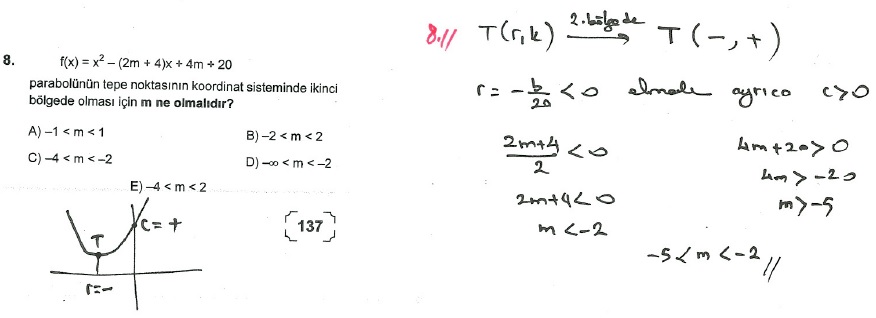 8. f(x) = x² – (2m + 4)x + 4m + 20
parabolünün tepe noktasının koordinat sisteminde ikinci
bölgede olması için m ne olmalıdır?
A) –1 < m < 1
B) –2 < m < 2
C) –4 < m < –2
D) –∞ < m < –2
E) –4 < m < 2
137
T
c = +
r = –
8.// T(r,k) 2.bölgede → T(–,+)
r = – b/2a < 0 olmalı ayrıca c > 0
(2m+4)/2 < 0
2m+4 < 0
m < –2
4m+20 > 0
4m > –20
m > –5
–5 < m < –2 //